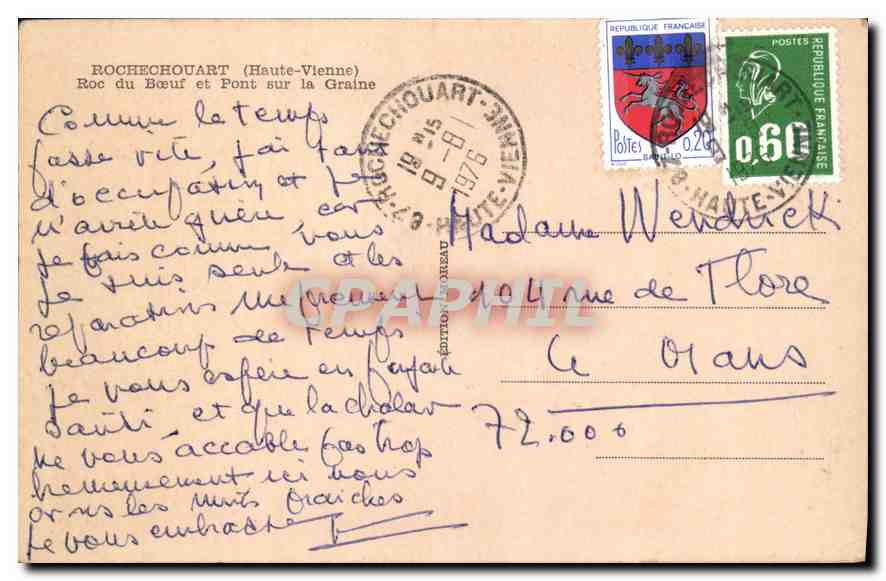 ROCHECHOUART (Haute-Vienne)
Roc du Bœuf et Pont sur la Graine
Comme le temps
passe vite, j'ai tant
d'occupations et je
n'arrête guère, car
je fais comme vous
je suis seule et les
réparations me prennent
beaucoup de temps
je vous espère en parfaite
santé et que la chaleur
ne vous accable pas trop
heureusement ici nous
avons les nuits fraiches
je vous embrasse
87-ROCHECHOUART-HAUTE-VIENNE
18H15
9-8
1976
REPUBLIQUE FRANÇAISE
POSTES 0,20
SAINT-LO
POSTES
REPUBLIQUE FRANÇAISE
0,60
ÉDITION MOREAU
Madame Wendrick
104 rue de Flore
Le Mans
72.000
CPAPHIL